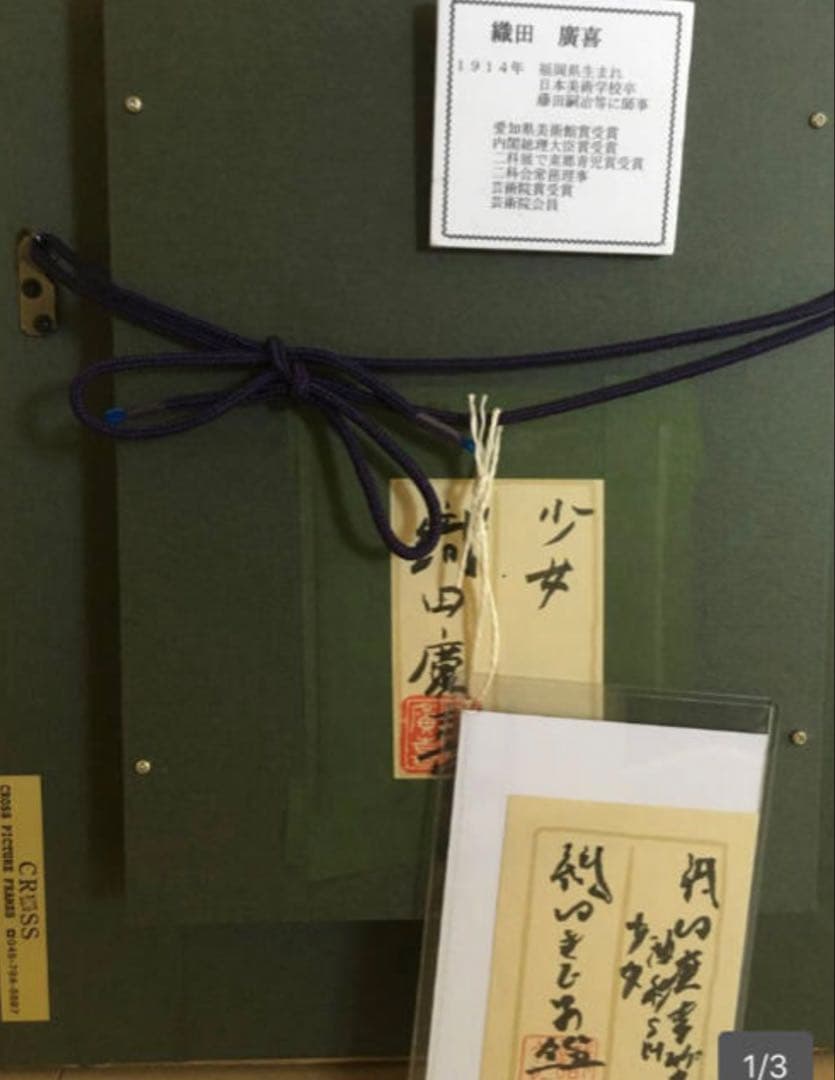 織田 廣喜
1914年 福岡県生まれ
日本美術学校卒
藤田嗣治等に師事
愛知県美術館賞受賞
内閣総理大臣賞受賞
二科展で東郷青児賞受賞
二科会常務理事
芸術院賞受賞
芸術院会員
少女
織田廣喜
CROSS
CROSS PICTURE FRAMES
少女
SM
鑑
1/3